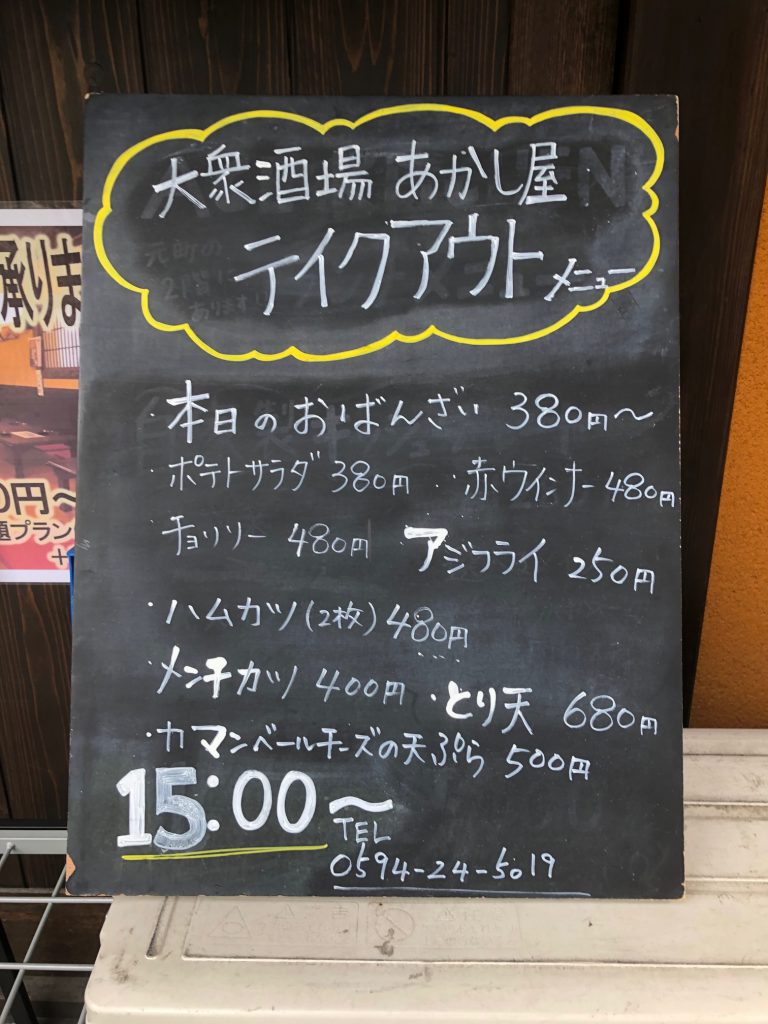 大衆酒場 あかし屋
テイクアウト メニュー
・本日のおばんざい 380円〜
・ポテトサラダ 380円 ・赤ウインナー 480円
・チョリソー 480円 アジフライ 250円
・ハムカツ(2枚) 480円
・メンチカツ 400円 ・とり天 680円
・カマンベールチーズの天ぷら 500円
15:00〜
TEL
0594-24-5019
承りま
0円〜
題プラン